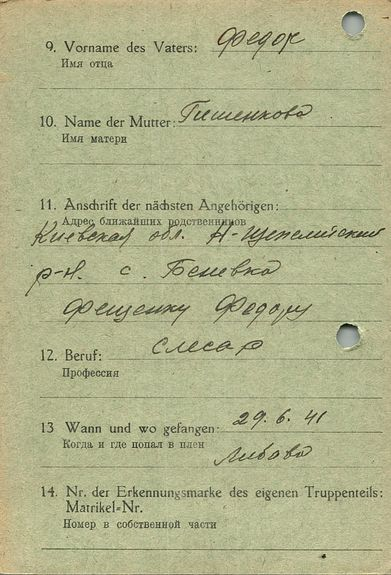 9. Vorname des Vaters: Федор
Имя отца
10. Name der Mutter: Гишенкова
Имя матери
11. Anschrift der nächsten Angehörigen:
Адрес ближайших родственников
Киевская обл.
р-н. с. Беневка
Фещенку Федору
12. Beruf: слесар
Профессия
13 Wann und wo gefangen: 29.6.41
Когда и где попал в плен
Либава
14. Nr. der Erkennungsmarke des eigenen Truppenteils:
Matrikel-Nr.
Номер в собственной части